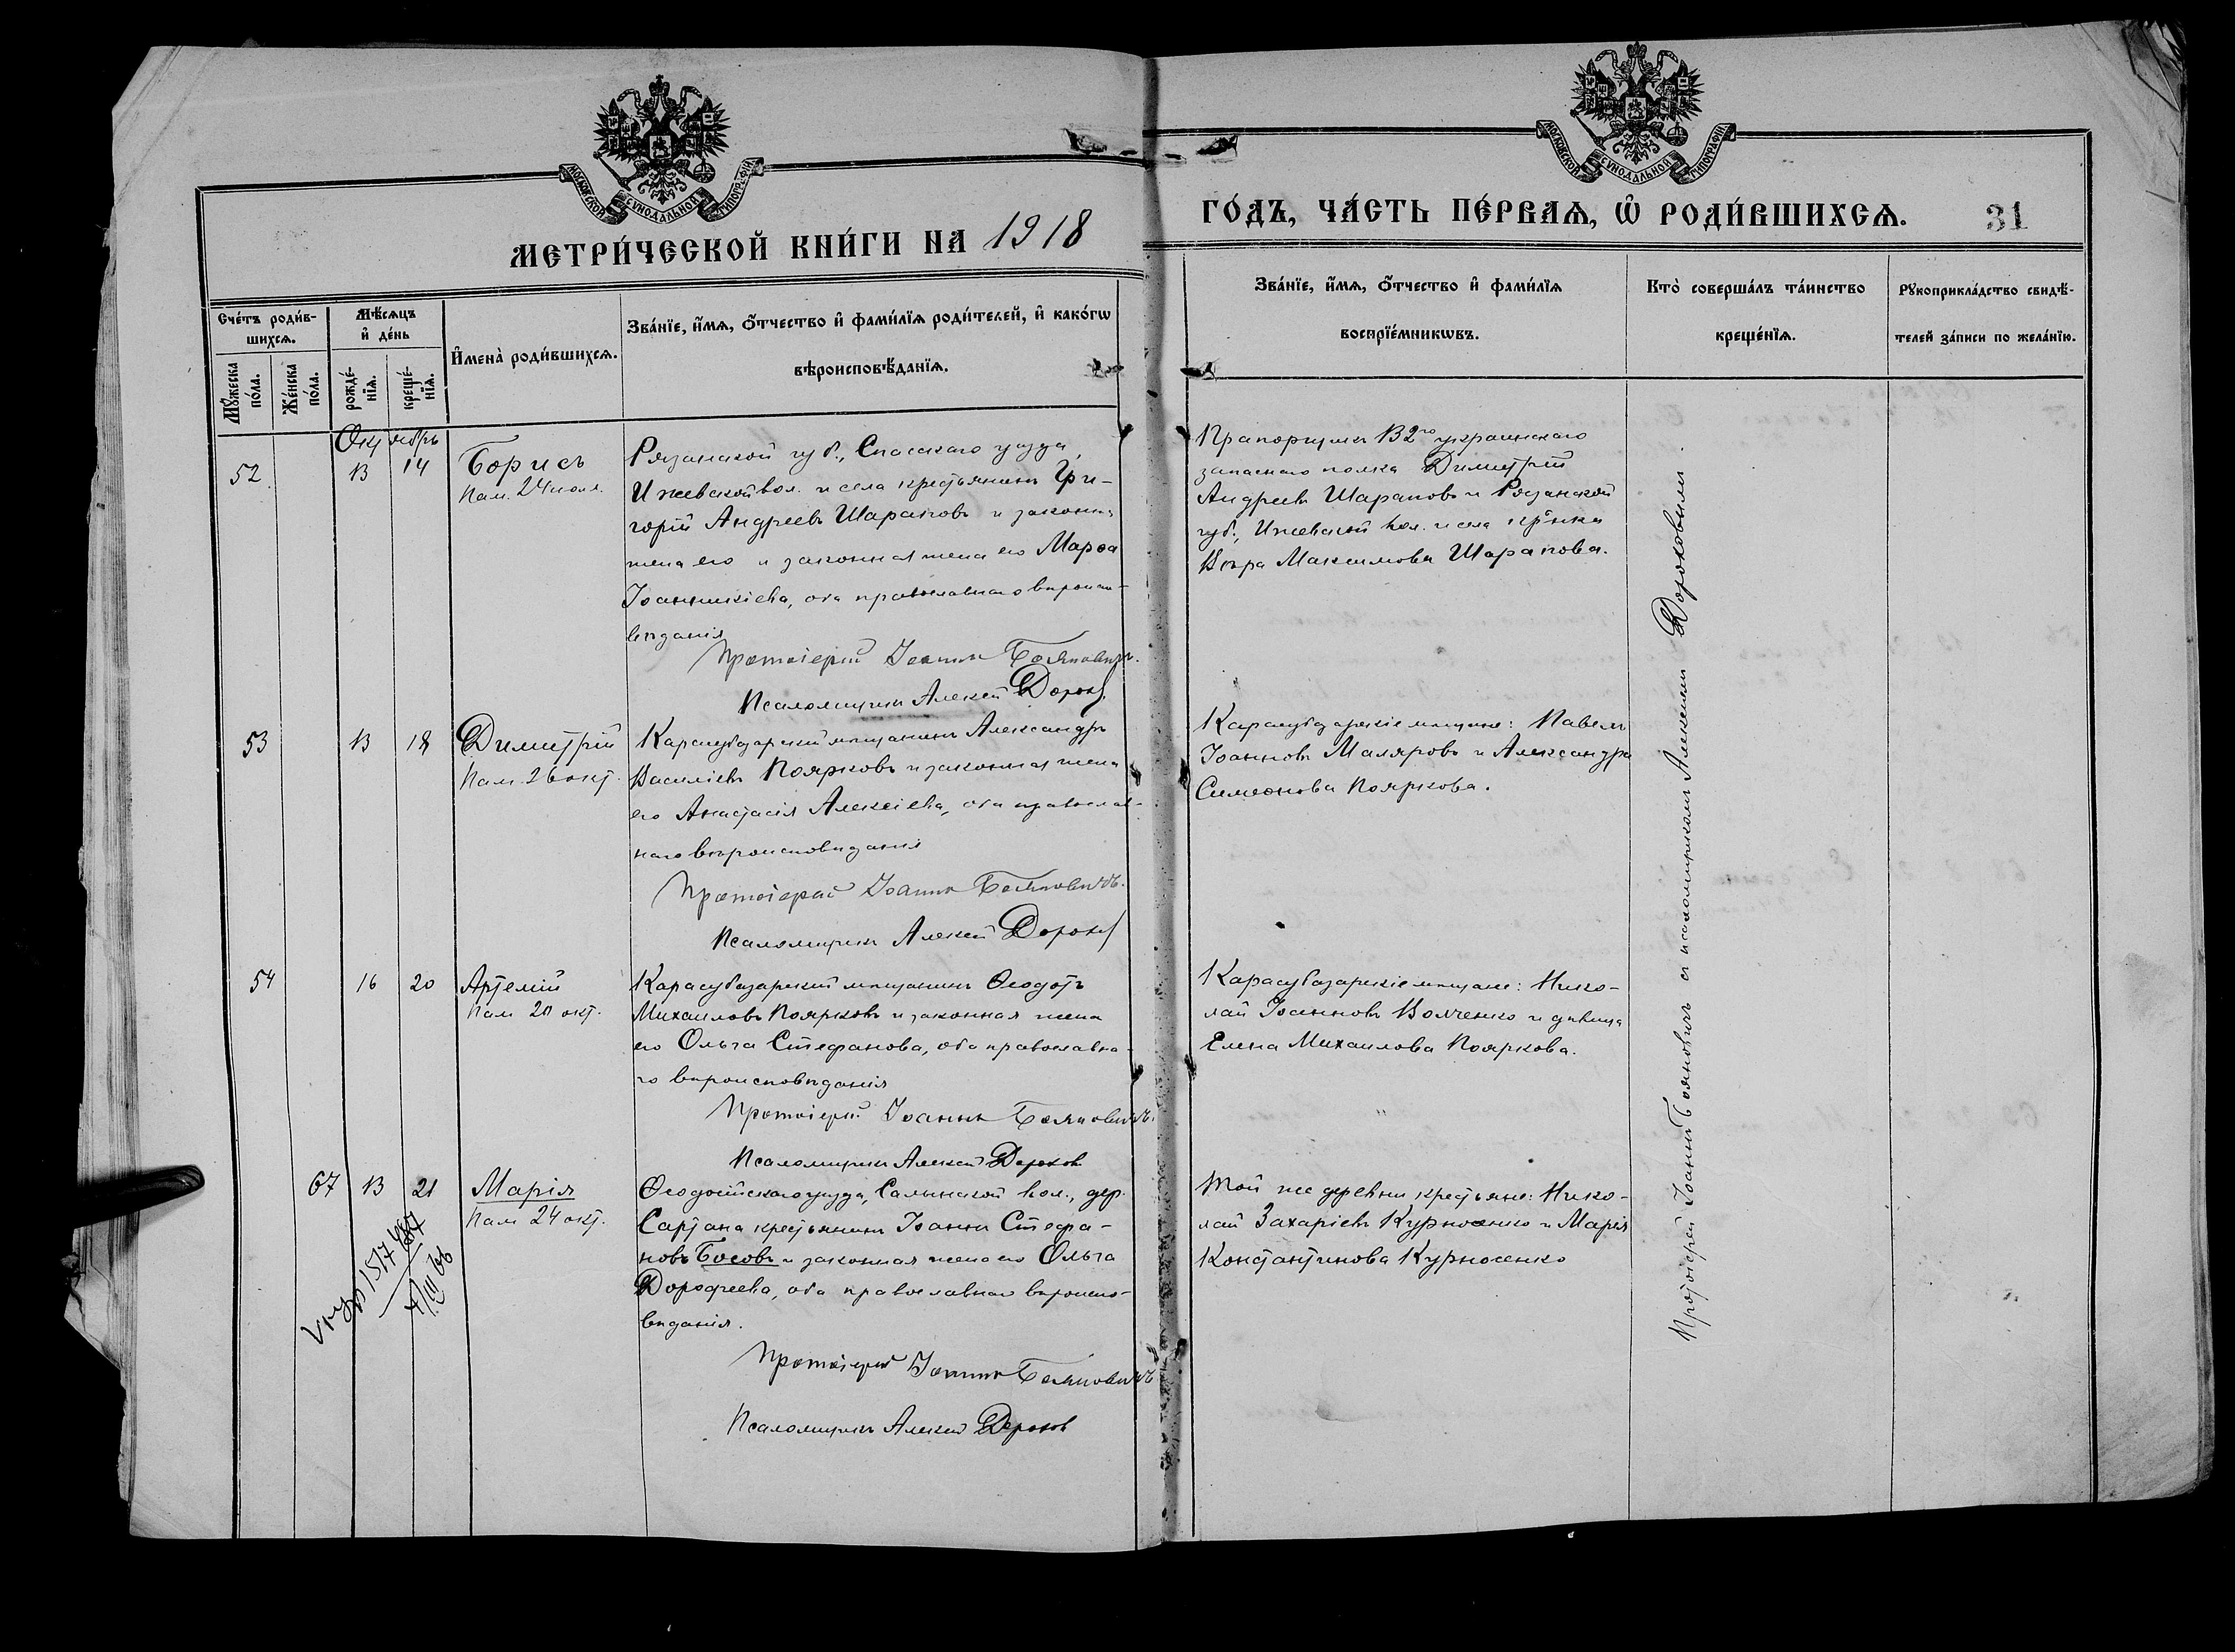 МОСКОВСКОЙ СѴНОДАЛЬНОЙ ТИПОГРАФІИ
МОСКОВСКОЙ СѴНОДАЛЬНОЙ ТИПОГРАФІИ
МЕТРИ́ЧЕСКОЙ КНИ́ГИ НА 1918
ГО́ДЪ, ЧА́СТЬ ПЕ́РВАѦ, Ѡ РОДИ́ВШИХСѦ.
31
Сче́тъ роди́в-
шихсѧ.
Мѣ́сѧцъ
и де́нь
Мꙋ́жеска
по́ла.
Же́нска
по́ла.
рожде́-
нїѧ.
креще́-
нїѧ.
Имена̀ роди́вшихсѧ.
Зва́нїе, и́мѧ, ѻ́тчество и фами́лїѧ роди́телей, и како́гѡ
вѣроисповѣ́данїѧ.
Зва́нїе, и́мѧ, ѻ́тчество и фами́лїѧ
воспрїе́мникѡвъ.
Кто̀ соверша́лъ та́инство
креще́нїѧ.
Рꙋкоприкла́дство свидѣ́-
телей за́писи по жела́нїю.
Октябрь
52
13
14
Борисъ
Пам. 24 іюля.
Рязанской губ., Спасскаго уѣзда,
Ижевской вол. и села крестьянинъ Гри-
горій Андреевъ Шараповъ и законн.
жена его и законная жена его Марѳа
Іоанникіева, оба православнаго вѣроиспо-
вѣданія
Протоіерей Іоаннъ Бояновичъ.
Псаломщикъ Алексій Дорох
Прапорщикъ 132го украинскаго
запаснаго полка Димитрій
Андреевъ Шараповъ и Рязанской
губ., Ижевской вол. и села кр-нка
Вѣра Максимова Шарапова.
53
13
18
Димитрій
Пам. 26 окт.
Карасубазарскій мѣщанинъ Александръ
Василіевъ Поярковъ и законная жена
его Анастасія Алексіева, оба православ-
наго вѣроисповѣданія
Протоіерей Іоаннъ Бояновичъ.
Псаломщикъ Алексій Дорох
Карасубазарскіе мѣщане: Павелъ
Іоанновъ Маляровъ и Александра
Симеонова Пояркова.
54
16
20
Артемій
Пам 20 окт.
Карасубазарскій мѣщанинъ Ѳеодотъ
Михаиловъ Поярковъ и законная жена
его Ольга Стефанова, оба православна-
го вѣроисповѣданія
Протоіерей Іоаннъ Бояновичъ.
Псаломщикъ Алексій Дорохов
Карасубазарскіе мѣщане: Нико-
лай Іоанновъ Волченко и дѣвица
Елена Михаилова Пояркова.
67
13
21
Марія
Пам 24 окт.
Ѳеодосійскаго уѣзда, Салынской вол., дер.
Сартана крестьянинъ Іоаннъ Стефа-
новъ Босовъ и законная жена его Ольга
Дорофеева, оба православнаго вѣроиспо-
вѣданія.
Протоіерей Іоаннъ Бояновичъ
Псаломщикъ Алексій Дорохов
Той же деревни крестьяне: Нико-
лай Захаріевъ Курносенко и Марія
Константинова Курносенко
Протоіерей Іоаннъ Бояновичъ съ псаломщикомъ Алексіемъ Дороховымъ.